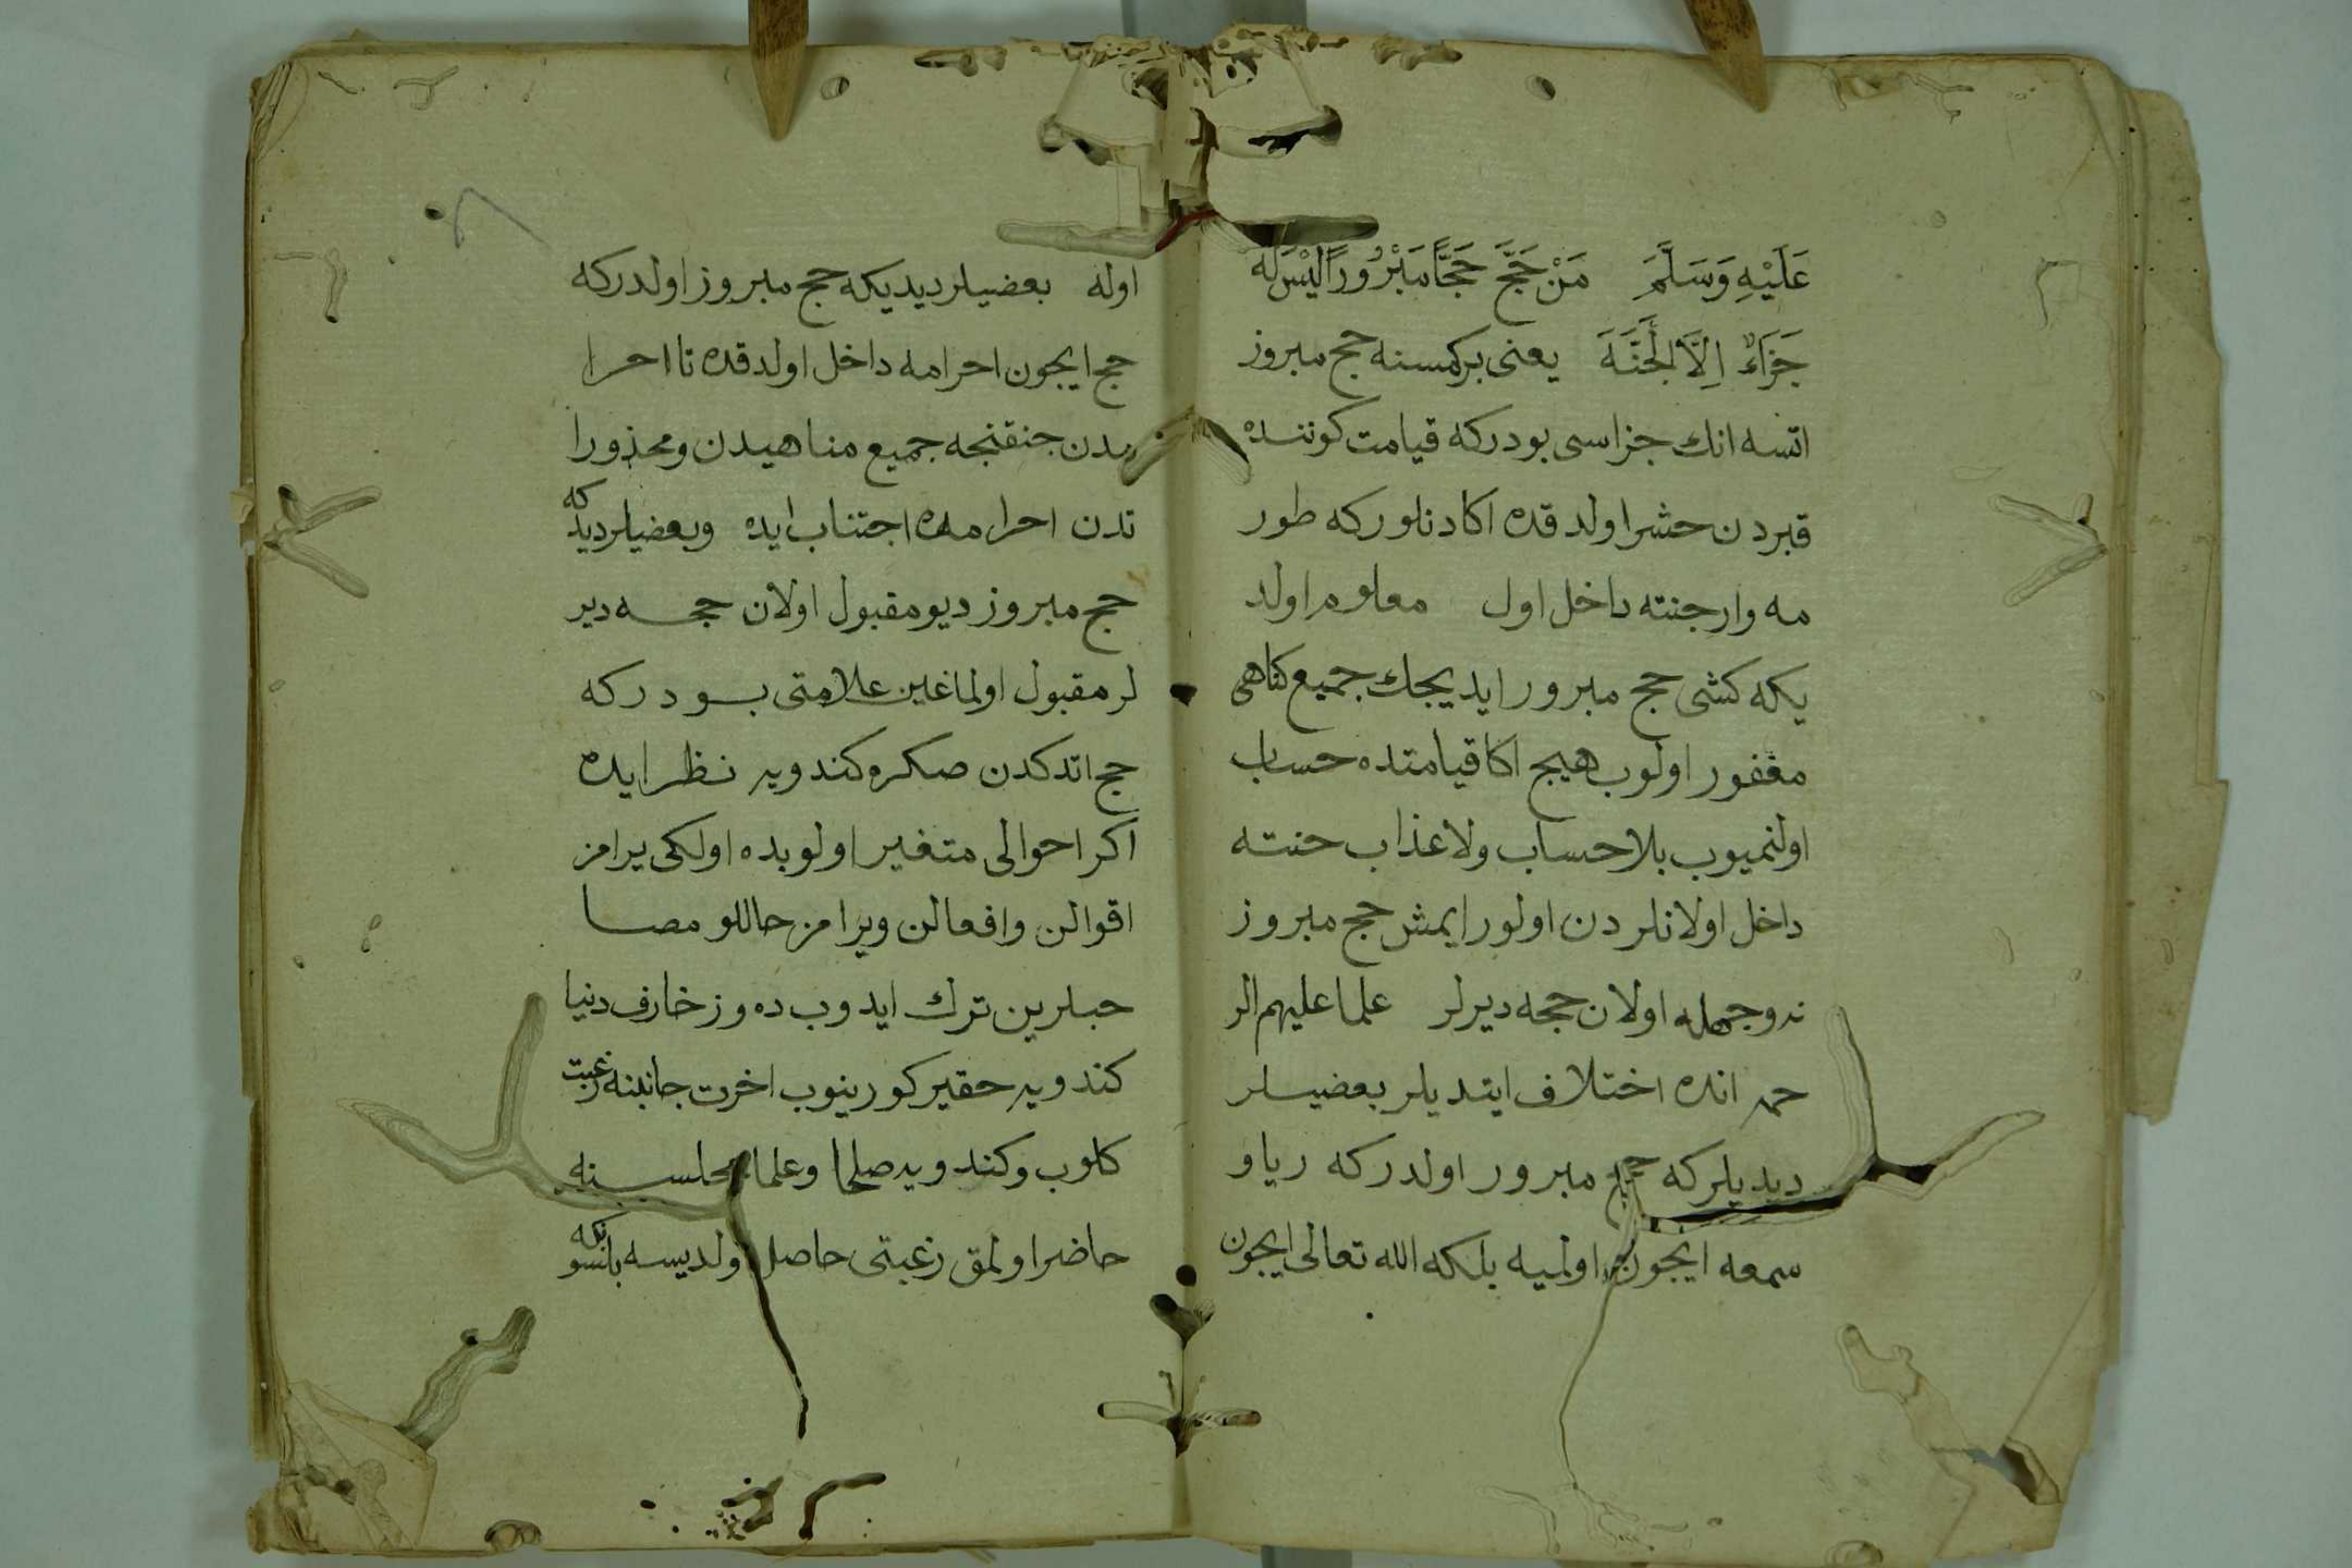 عَلَيْهِ وَسَلَّمَ مَنْ حَجَّ حَجًّا مَبْرُورًا لَيْسَ لَهُ
جَزَاءٌ اِلَّا الْجَنَّةَ يعنى بركمسنه حج مبروز
اتسه انك جزاسى بودركه قيامت كوننده
قبردن حشر اولدقده اكا دنلوركه طور
مه وار جنته داخل اول معلوم اولد
يكه كشى حج مبرور ايديجك جميع كناهى
مغفور اولوب هيج اكا قيامتده حساب
اولنميوب بلا حساب ولا عذاب جنته
داخل اولانلردن اولور ايمش حج مبروز
نه وجهله اولان حجه ديرلر علما عليهم الر
حمه انده اختلاف ايتديلر بعضيلر
ديديلركه حج مبرور اولدركه ريا و
سمعه ايجون اولميه بلكه الله تعالى ايجون
اوله بعضيلر ديديكه حج مبروز اولدركه
حج ايجون احرامه داخل اولدقده تا احرا
مدن جنقنجه جميع مناهيدن ومحذورا
تدن احرامده اجتناب ايده وبعضيلر ديديكه
حج مبروز ديو مقبول اولان حجه دير
لر مقبول اولماغين علامتى بودركه
حج اتدكدن صكره كندويه نظر ايده
اكر احوالى متغير اولوبده اولكى يرامز
اقوالن وافعالن ويرامز حاللو مصا
حبلرين ترك ايدوب ده وزخارف دنيا
كندويه حقير كورينوب اخرت جانبنه رغبت
كلوب وكندويه صلحا وعلما مجلسينه
حاضر اولمق رغبتى حاصل اولديسه